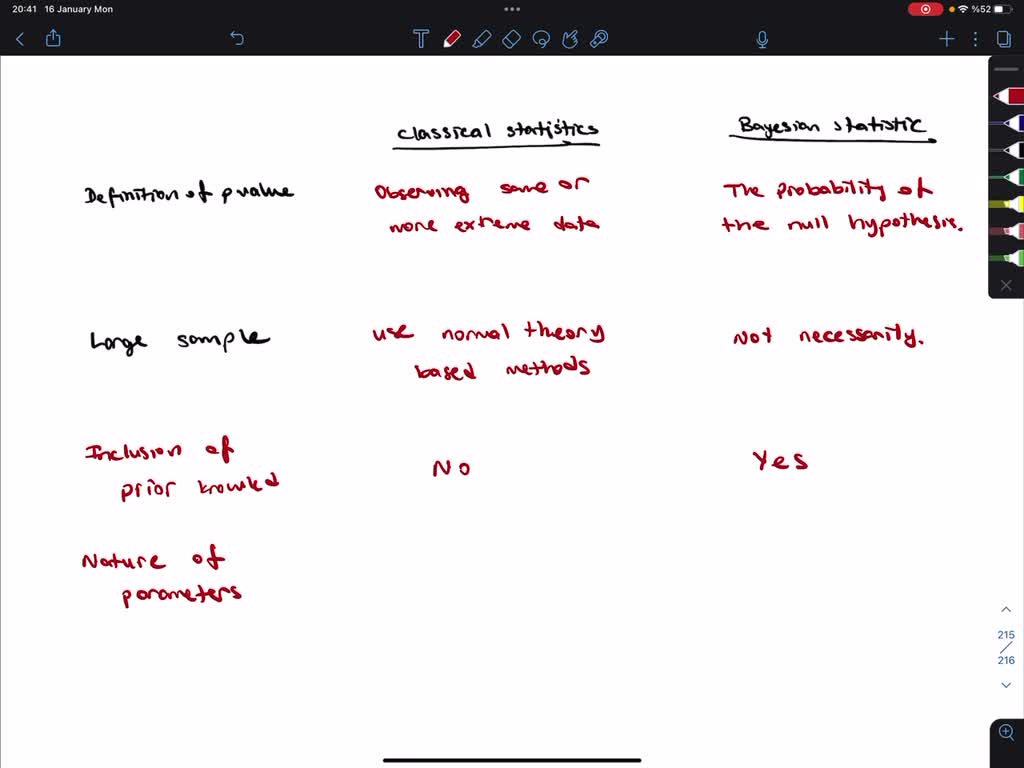 20:41 16 January Mon
%52
Classical statistics
Bayesian statistic
Definition of p value
Observing same or
more extreme data
The probability of
the null hypothesis.
Large sample
use normal theory
based methods
Not necessarily.
Inclusion of
prior knowled
No
Yes
Nature of
parameters
215
216